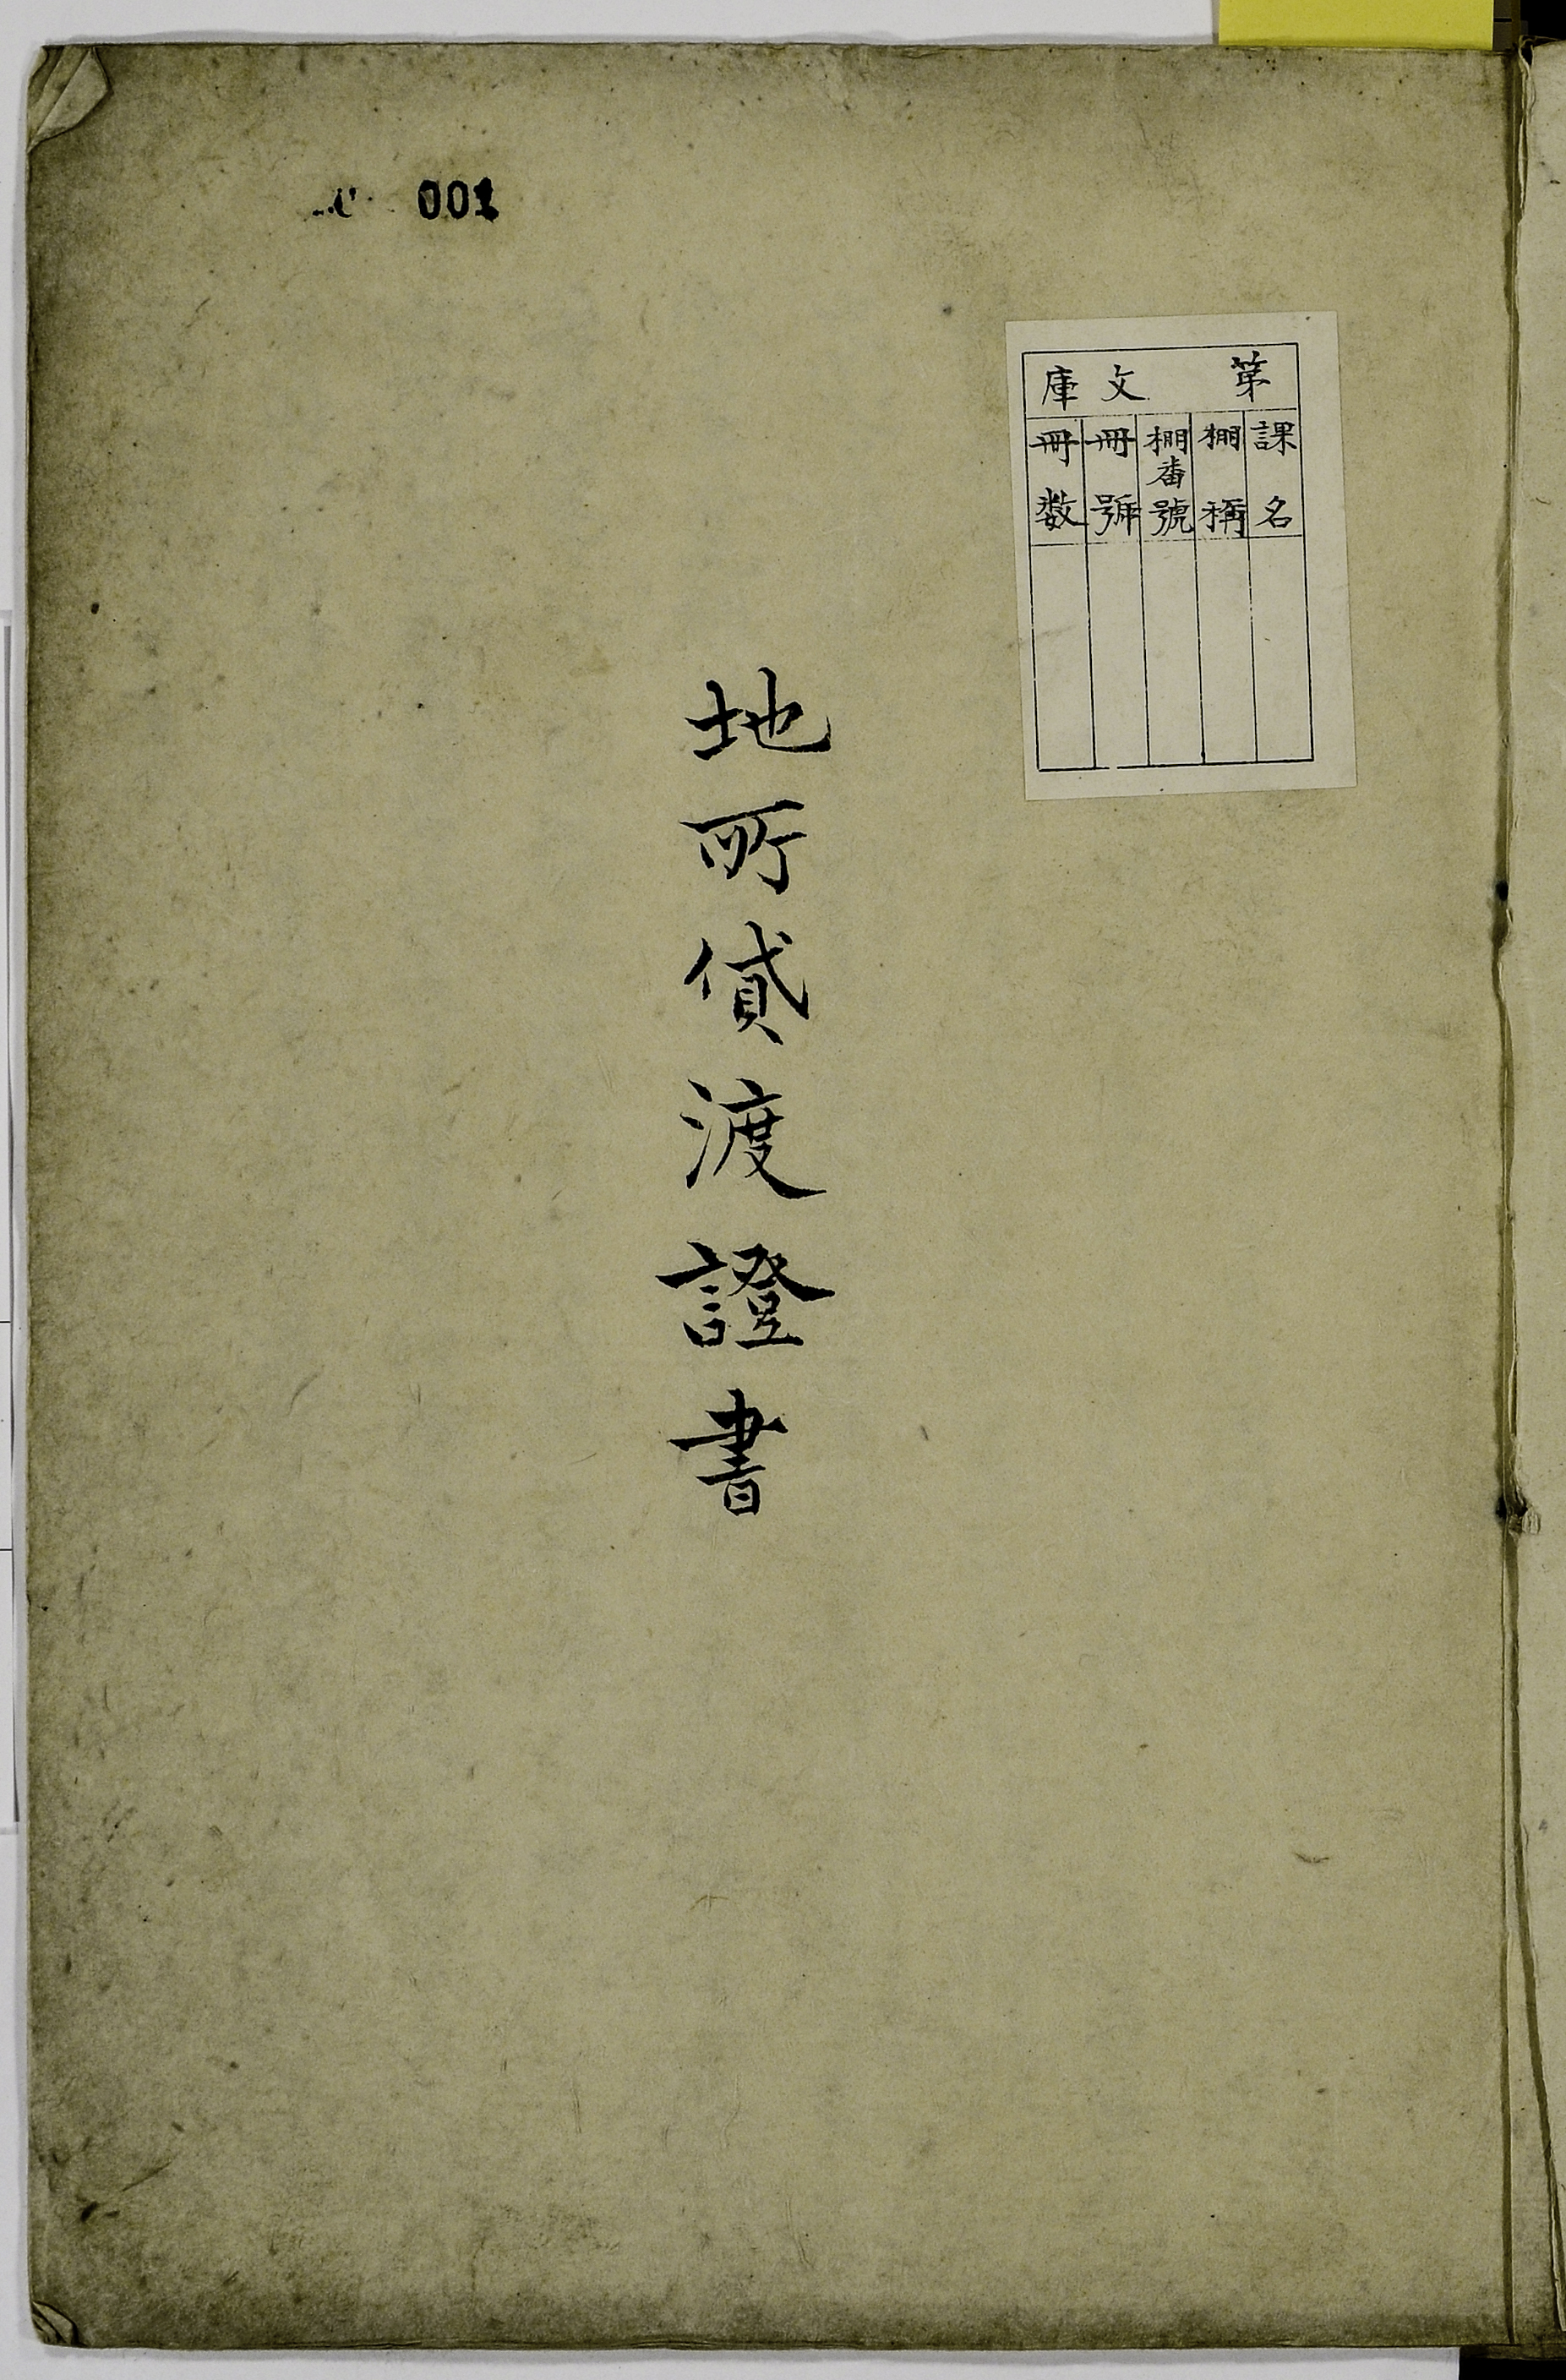 001
第 文庫
課名
棚稱
棚番號
冊號
冊数
地所貸渡證書